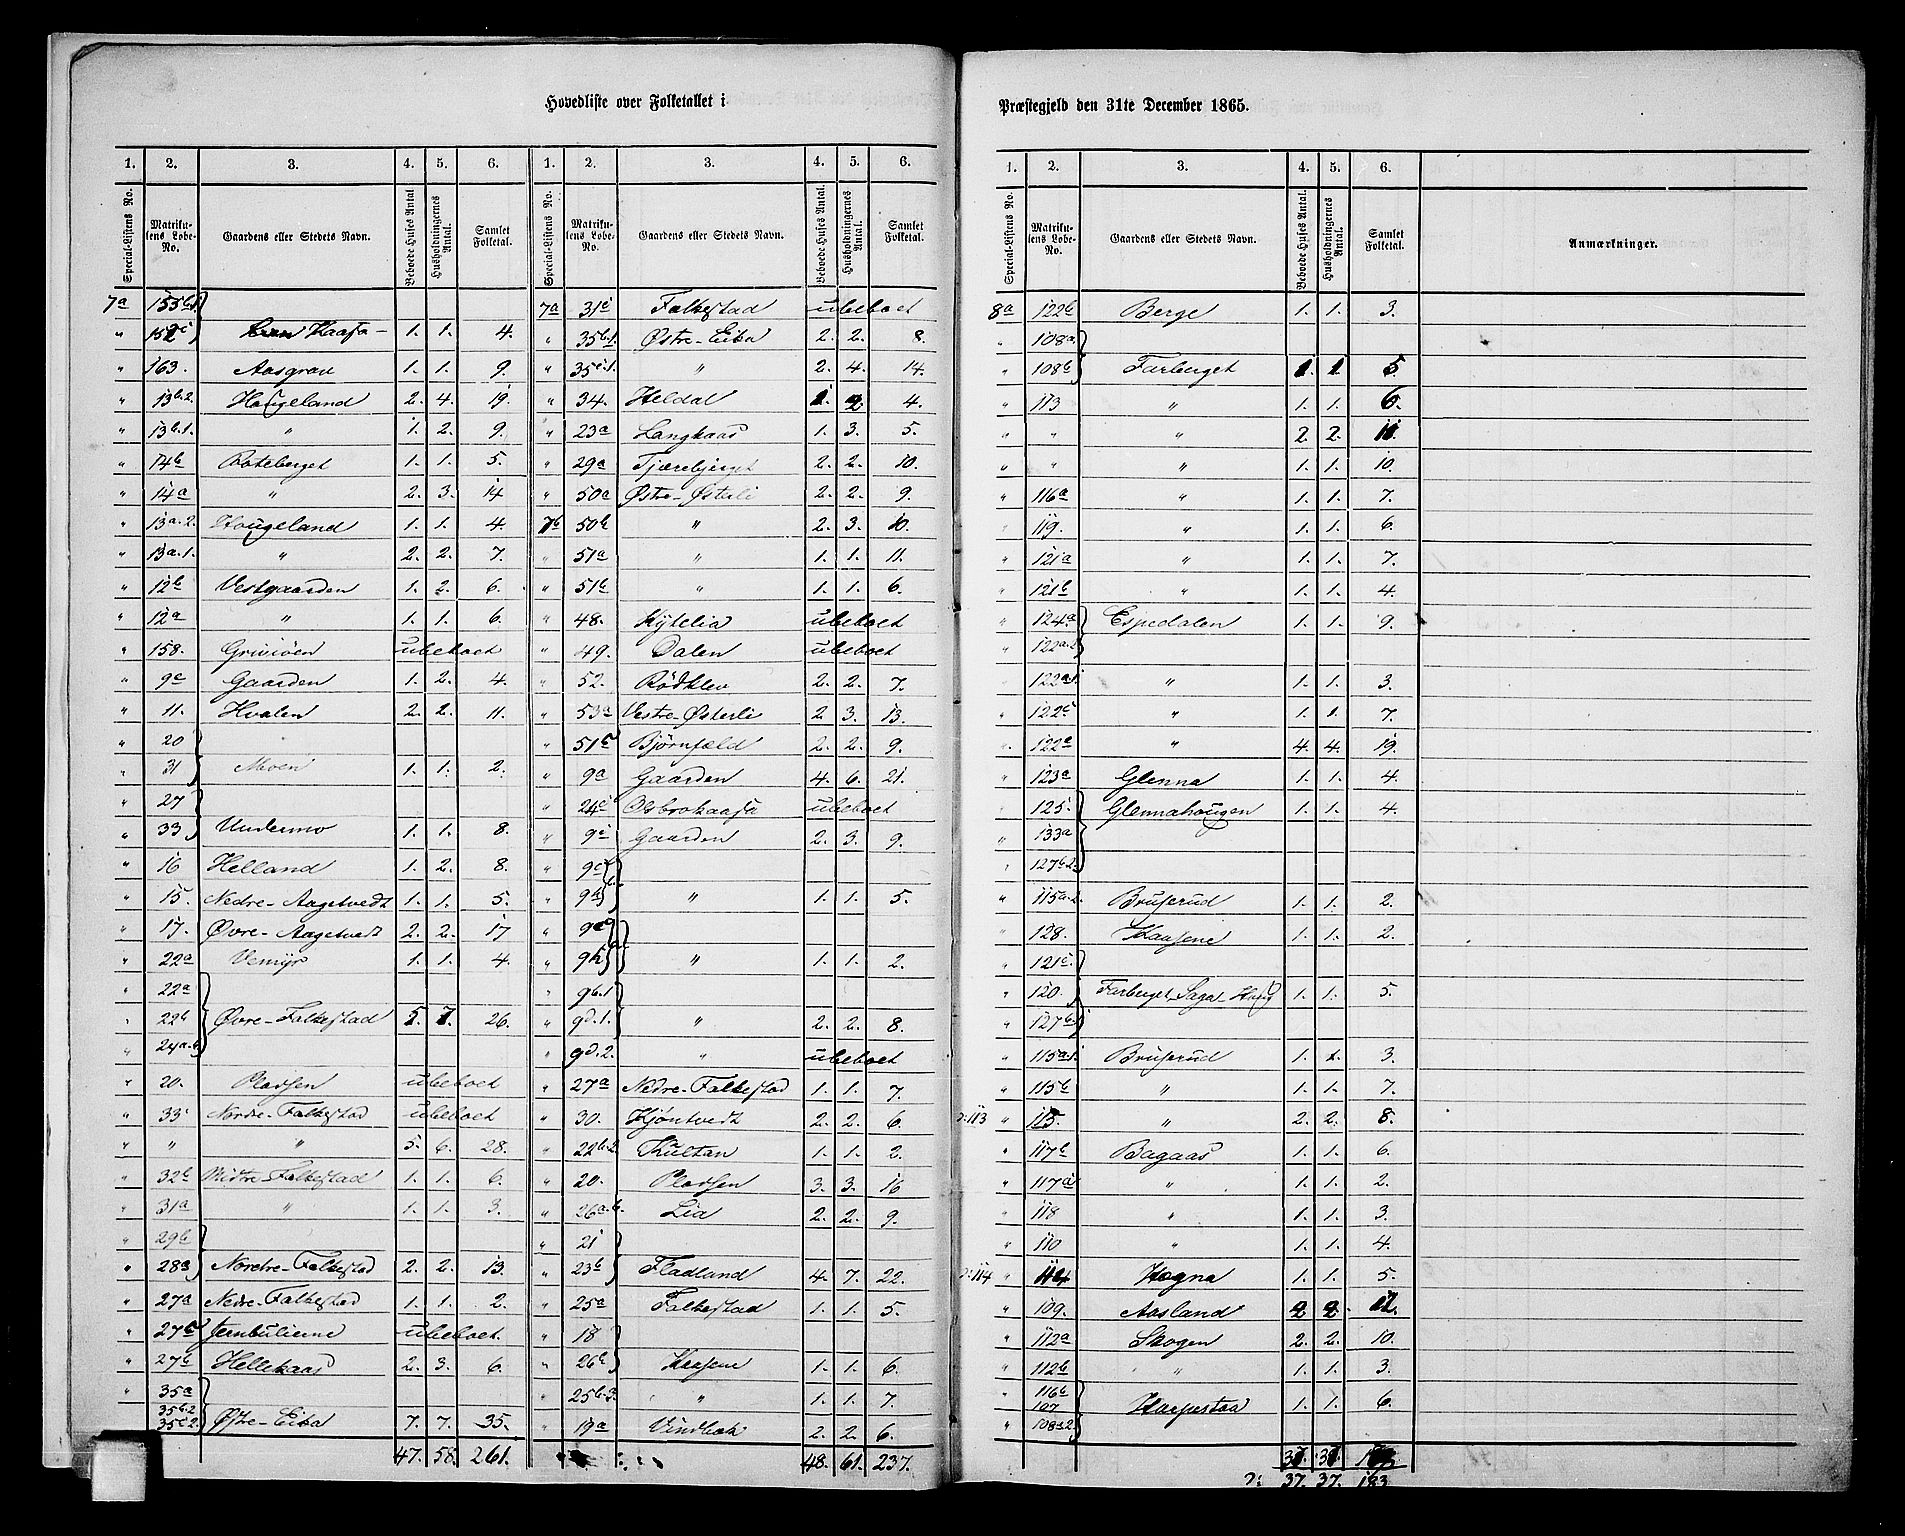 Hovedliste over Folketallet i Præstegjeld den 31te December 1865.
1. 2. 3. 4. 5. 6.
Special-Listens No. Matrikulens Løbe-No. Gaardens eller Stedets Navn. Beboede Huses Antal Husholdningernes Antal. Samlet Folketal.
7a 155b.1
" 152c Kaasa 1. 1. 4.
" 163. Aasgrav 1. 1. 9.
" 13b.2. Haugeland 2. 4. 19.
" 13b.1. " 1. 2. 9.
" 14b Roteberget 1. 1. 5.
" 14a " 2. 3. 14
" 13a.2. Hougeland 1. 1. 4.
" 13a.1. " 2. 2. 7.
" 12b Vestgaarden 1. 2. 6.
" 12a " 1. 1. 6.
" 158. ubeboet
" 9c Gaarden 1. 2. 4.
" 11. Hvalen 2. 2. 11.
" 20
" 31 Moen 1. 1. 2.
" 27
" 33 Undermo 1. 1. 8.
" 16 Helland 1. 2. 8.
" 15. Nedre-Aagetvedt 1. 1. 5.
" 17. Øvre-Aagetvedt 2. 2. 17
" 22a Vemyr 1. 1. 4.
" 22a
" 22b Øvre-Falkestad 5. 7. 26.
" 24a.b
" 20. Pladsen ubeboet
" 33c Nordre-Falkestad ubeboet
" " " 5. 6. 28.
" 32b Midtre-Falkestad 1. 1. 6.
" 31a " 1. 1. 3.
" 29b
" 28a Nordre-Falkestad 2. 2. 13.
" 27a Nedre-Falkestad 1. 1. 2.
" 27c ubeboet
" 27b Hellekaas 2. 3. 6.
" 35a
35b.2
35c.2. Østre-Eika 7. 7. 35.
47. 58. 261.
1. 2. 3. 4. 5. 6.
Special-Listens No. Matrikulens Løbe-No. Gaardens eller Stedets Navn. Beboede Huses Antal. Husholdningernes Antal. Samlet Folketal.
7a 31c Falkestad ubeboet
" 35b.1. Østre-Eika 2. 2. 8.
" 35c.1. " 2. 4. 14.
" 34. Heldal 1. 2. 4.
" 23a Langkaas 1. 3. 5.
" 29a Tjærebjerget 2. 2. 10.
" 50a Østre-Østerli 2. 2. 9.
7b 50b " 2. 3. 10.
" 51a " 1. 1. 11.
" 51b " 1. 1. 6.
" 48. Kytelia ubeboet
" 49. Dalen ubeboet
" 52. Rödklev 2. 2. 7.
" 53a Vestre-Østerli 2. 3. 13.
" 51c Bjørnfæld 2. 2. 9.
" 9a Gaarden 4. 6. 21.
" 24c Olsbrokaasa ubeboet
" 9i Gaarden 2. 3. 9.
" 9c
" 9h " 1. 1. 5.
" 9e
" 9k " 1. 1. 2.
" 9b.1
" 9d.1. " 2. 2. 8.
" 9d.2. " ubeboet
" 27a Nedre-Falkestad 1. 1. 7.
" 30. Kjöntvedt 2. 2. 6.
" 22b.2. Kultan 1. 1. 2.
" 20. Pladsen 3. 3. 16
" 26a.b. Lia 2. 2. 9.
" 21
" 23b Fladland 4. 7. 22.
" 25a Falkestad 1. 1. 5.
" 18
" 26b Kaasene 1. 1. 6.
" 25b.3. " 1. 1. 7.
" 19a Vindlaak 2. 2. 6.
48. 61. 237.
1. 2. 3. 4. 5. 6.
Special-Listens No. Matrikulens Løbe-No. Gaardens eller Stedets Navn. Beboede Huses Antal. Husholdningernes Antal. Samlet Folketal. Anmærkninger.
8a 122b Berge 1. 1. 3.
" 108a
" 108b Farberget 1. 1. 5.
" 113 " 1. 1. 6.
" " " 2. 2. 11.
" " " 1. 1. 10.
" 116a " 1. 1. 7.
" 119. " 1. 1. 6.
" 121a " 1. 1. 7.
" 121b " 1. 1. 4.
" 124a Espedalen 1. 1. 9.
" 122a.2
" 122a.1 " 1. 1. 3.
" 122c " 1. 1. 7.
" 122a " 4. 4. 19.
" 123a Glenna 1. 1. 4.
" 125. Glennahougen 1. 1. 4.
" 133a
" 127b.2.
" 115a.2. Bruserud 1. 1. 2.
" 128. Kaasene 1. 1. 2.
" 121c
" 120. Farberget, Saga, Haug 1. 1. 5.
" 127b
" 115a.1. Bruserud 1. 1. 3.
" 115b " 1. 1. 7.
2: 113 " 115. " 2. 2. 8.
" 117b Bagaas 1. 1. 6.
" 117a " 1. 1. 2.
" 118 " 1. 1. 3.
" 110 " 1. 1. 4.
2: 114 " 114 Hogna 1. 1. 5.
" 109. Aasland 2 2. 12.
" 112a Skogen 2. 2. 10.
" 112b " 1. 1. 3.
" 116b
107 Harpestaa 1. 1. 6.
" 108a2.
2: 37. 37. 183